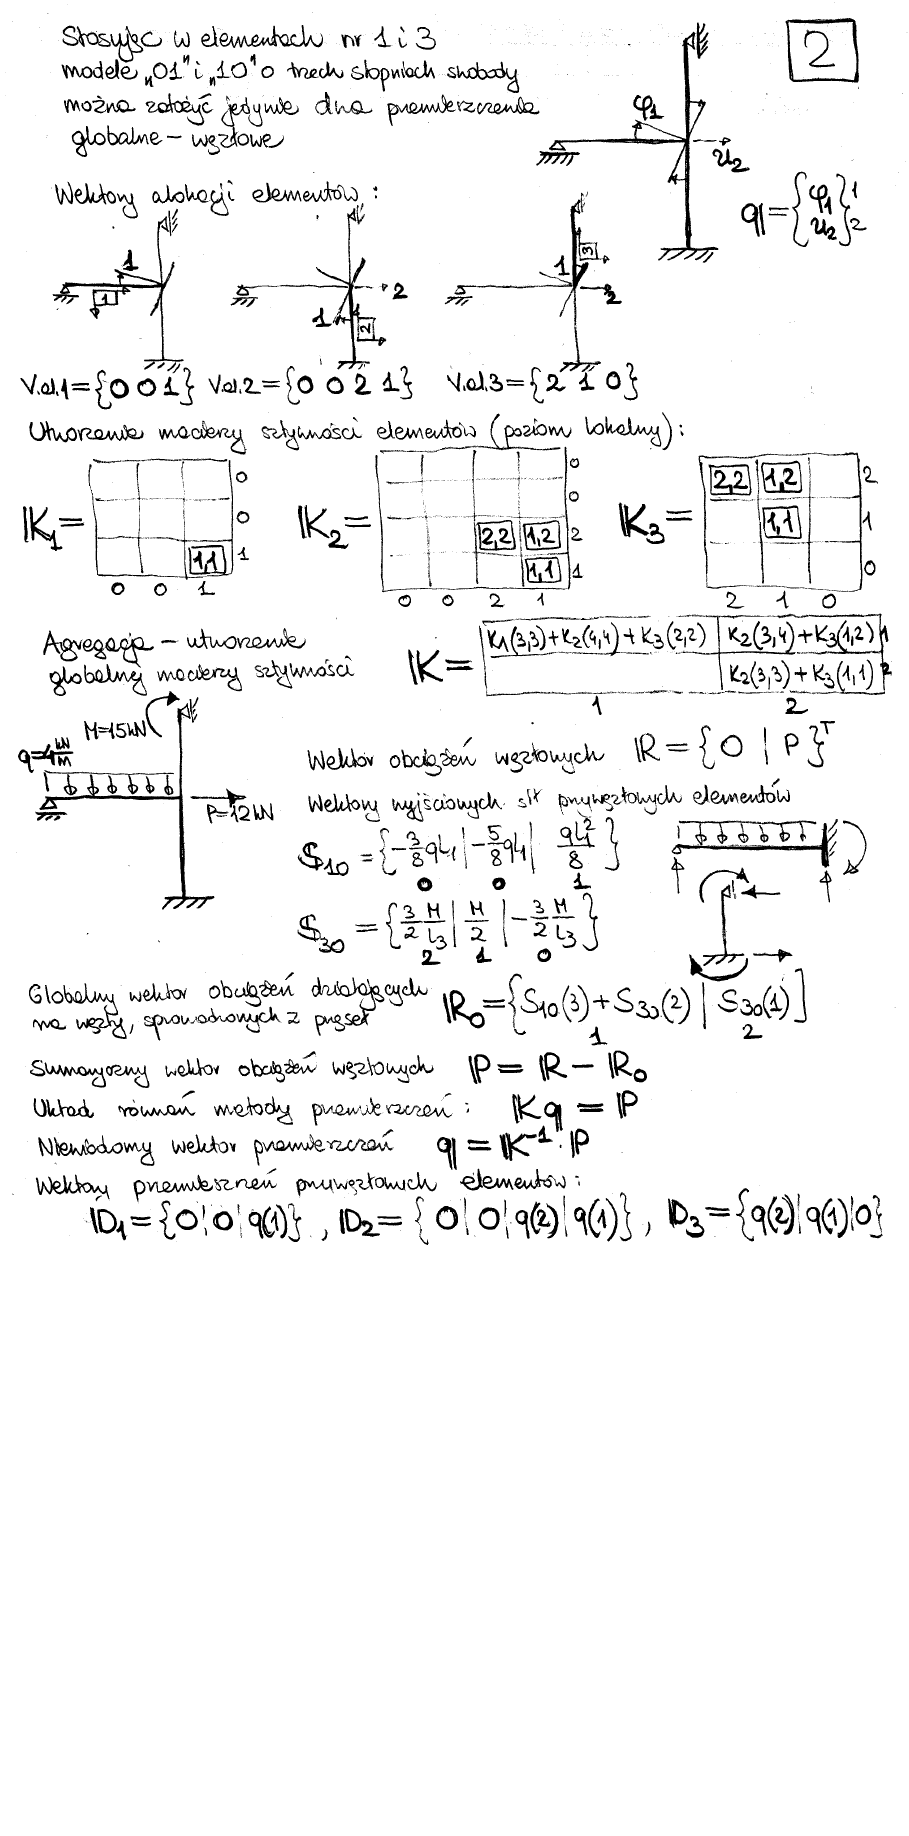 Stosując w elementach nr 1 i 3
2
modele „01” i „10” o trzech stopniach swobody
można założyć jedynie dwa przemieszczenia
globalne – węzłowe
φ1
u2
q = {φ1 u2} 1 2
Wektory alokacji elementów:
1 1
2 1 2
1 3 2
V.al.1 = {0 0 1} V.al.2 = {0 0 2 1} V.al.3 = {2 1 0}
Utworzenie macierzy sztywności elementów (poziom lokalny):
K1 =
0
0
1,1 1
0 0 1
K2 =
0
0
2,2 1,2 2
1,1 1
0 0 2 1
K3 =
2,2 1,2 2
1,1 1
0
2 1 0
Agregacja – utworzenie
globalnej macierzy sztywności
K =
K1(3,3)+K2(4,4)+K3(2,2) K2(3,4)+K3(1,2) 1
K2(3,3)+K3(1,1) 2
1 2
M=15kN
q=4 kN/m
P=12kN
Wektor obciążeń węzłowych R = {0 | P}T
Wektory wyjściowych sił przywęzłowych elementów
S10 = {-3/8 qL1 | -5/8 qL1 | qL1²/8}
0 0 1
S30 = {3/2 M/L3 | M/2 | -3/2 M/L3}
2 1 0
Globalny wektor obciążeń działających
na węzły, sprowadzonych z przęseł
R0 = {S10(3)+S30(2) | S30(1)]
1 2
Sumaryczny wektor obciążeń węzłowych P = R – R0
Układ równań metody przemieszczeń: Kq = P
Niewiadomy wektor przemieszczeń q = K-1·P
Wektory przemieszczeń przywęzłowych elementów:
D1 = {0|0|q(1)}, D2 = {0|0|q(2)|q(1)}, D3 = {q(2)|q(1)|0}